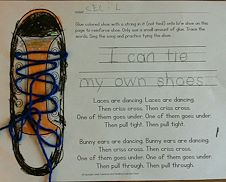 NAME
Glue colored shoe with a string in it (not tied) onto the shoe on this
page to reinforce shoe. Only use a small amount of glue. Trace the
words. Sing the song and practice tying the shoe.
I can tie
my own shoes
Laces are dancing. Laces are dancing.
Then criss cross. Then criss cross.
One of them goes under. One of them goes under.
Then pull tight. Then pull tight.
Bunny ears are dancing. Bunny ears are dancing.
Then criss cross. Then criss cross.
One of them goes under. One of them goes under.
Then pull through. Then pull through.